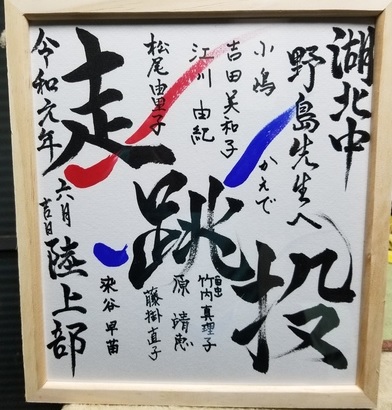 湖北中
野島先生へ
かえで
小嶋
吉田美和子
江川 由紀
松尾由里子
走
跳
投
竹内真理子
原 靖恵
藤掛直子
早苗
令和元年
六月
吉日
陸上部